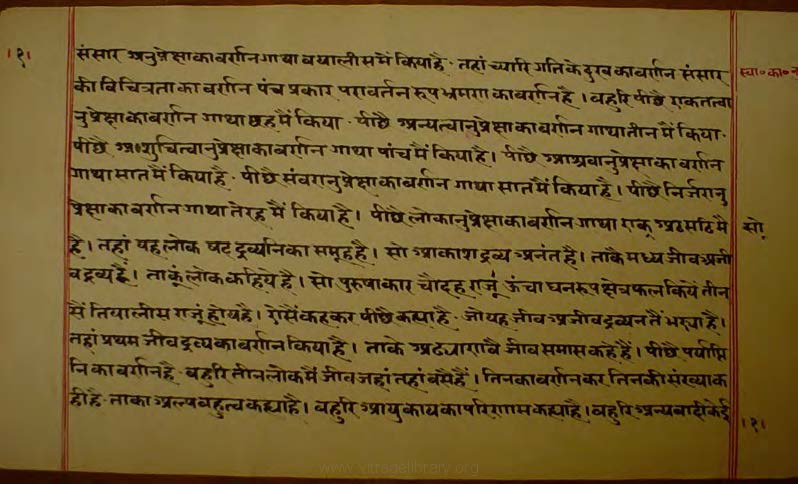 ।१।
संसार अनुप्रेक्षा का वर्णन गाथा बयालीस मैं किया है. तहां च्यारि गति के दुरव का वर्णन संसार
स्वा॰ का॰ न
की विचित्रता का वर्णन पंच प्रकार परावर्तन रूप भ्रमण का वर्णन है । बहुरि पीछै एकत्वा
नुप्रेक्षा का वर्णन गाथा छह मैं किया. पीछै अन्यत्वानुप्रेक्षा का वर्णन गाथा तीन मैं किया.
पीछै अशुचित्वानुप्रेक्षा का वर्णन गाथा पांच मैं किया है । पीछै आश्रवानुप्रेक्षा का वर्णन
गाथा सात मैं किया है. पीछै संवरानुप्रेक्षा का वर्णन गाथा सात मैं किया है । पीछै निर्जरानु
प्रेक्षा का वर्णन गाथा तेरह मैं किया है । पीछै लोकानुप्रेक्षा का वर्णन गाथा एक अठसठि मै
सो.
है । तहां यह लोक षट द्रव्यनि का समूह है । सो आकाश द्रव्य अनंत है । ताकै मध्य जीव अजी
व द्रव्य हैं । ताकूं लोक कहिये है । सो पुरुषाकार चौदह राजूं ऊंचा घनरूप क्षेत्रफल कियें तीन
सैं तियालीस राजूं होय है । ऐसैं कहकर पीछै कह्या है. जो यह जीव अजीव द्रव्यन तैं भर्या है ।
तहां प्रथम जीव द्रव्य का वर्णन किया है । ताके अठ्याणवै जीव समास कहे हैं । पीछै पर्याप्ति
नि का वर्णन है. बहुरि तीन लोक मैं जीव जहां तहां बसै हैं । तिन का वर्णन कर तिन की संख्या क
ही है. ताका अल्प बहुत्व कह्या है । बहुरि आयु काय का परिणाम कह्या है । बहुरि अन्यबादी केई
।१।
www.vitragelibrary.org